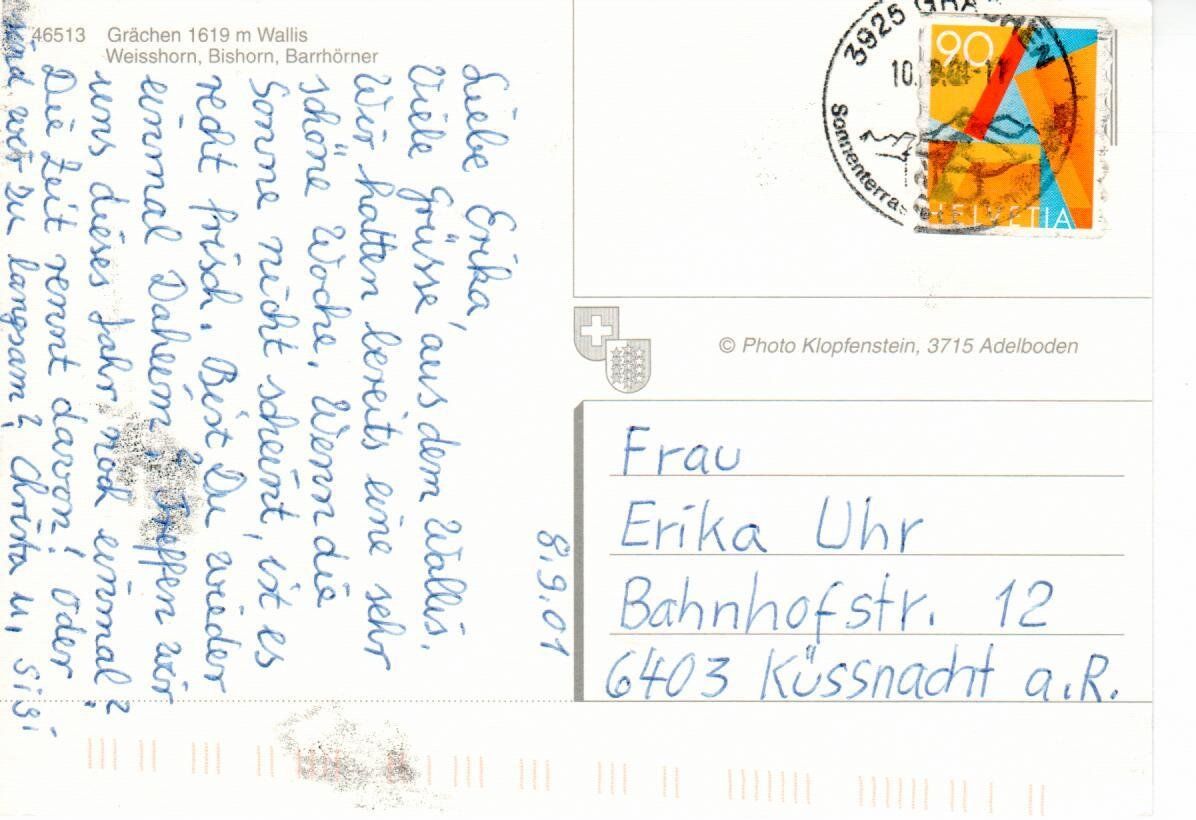 46513 Grächen 1619 m Wallis
Weisshorn, Bishorn, Barrhörner
8.9.01
Liebe Erika,
Viele Grüsse aus dem Wallis.
Wir hatten bereits eine sehr
schöne Woche. Wenn die
Sonne nicht scheint, ist es
recht frisch. Bist Du wieder
einmal Daheim? Treffen wir
uns dieses Jahr noch einmal?
Die Zeit rennt davon! Oder
sind wir zu langsam? Christa u. Sigi
3925 GRÄCHEN
Sonnenterras
90
HELVETIA
© Photo Klopfenstein, 3715 Adelboden
Frau
Erika Uhr
Bahnhofstr. 12
6403 Küssnacht a.R.